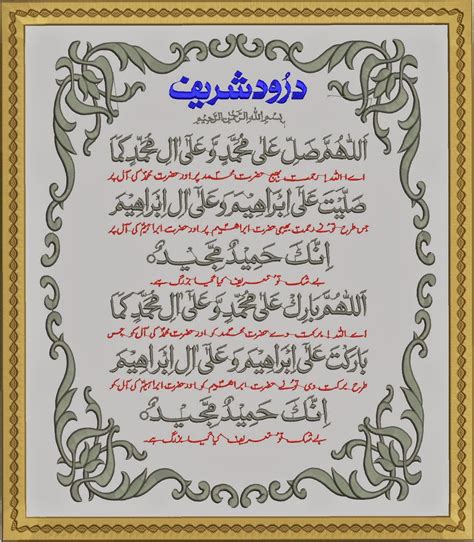 درُود شریف
بِسْمِ اللهِ الرَّحْمٰنِ الرَّحِیْمِ
اَللّٰهُمَّ صَلِّ عَلٰى مُحَمَّدٍ وَّ عَلٰٓى اٰلِ مُحَمَّدٍ كَمَا
اے اللہ! رحمت بھیج حضرت محمد پر اور حضرت محمد کی آل پر
صَلَّيْتَ عَلٰٓى اِبْرَاهِيْمَ وَ عَلٰٓى اٰلِ اِبْرَاهِيْمَ
جس طرح تو نے رحمت بھیجی حضرت ابراھیم پر اور حضرت ابراہیم کی آل پر
اِنَّكَ حَمِيْدٌ مَّجِيْدٌ
بے شک تو تعریف کیا گیا بزرگ ہے۔
اَللّٰهُمَّ بَارِكْ عَلٰى مُحَمَّدٍ وَّ عَلٰٓى اٰلِ مُحَمَّدٍ كَمَا
اے اللہ! برکت دے حضرت محمد کو اور حضرت محمد کی آل کو جس
بَارَكْتَ عَلٰٓى اِبْرَاهِيْمَ وَ عَلٰٓى اٰلِ اِبْرَاهِيْمَ
طرح برکت دی تو نے حضرت ابراھیم کو اور حضرت ابراہیم کی آل کو
اِنَّكَ حَمِيْدٌ مَّجِيْدٌ
بے شک تو تعریف کیا گیا بزرگ ہے۔